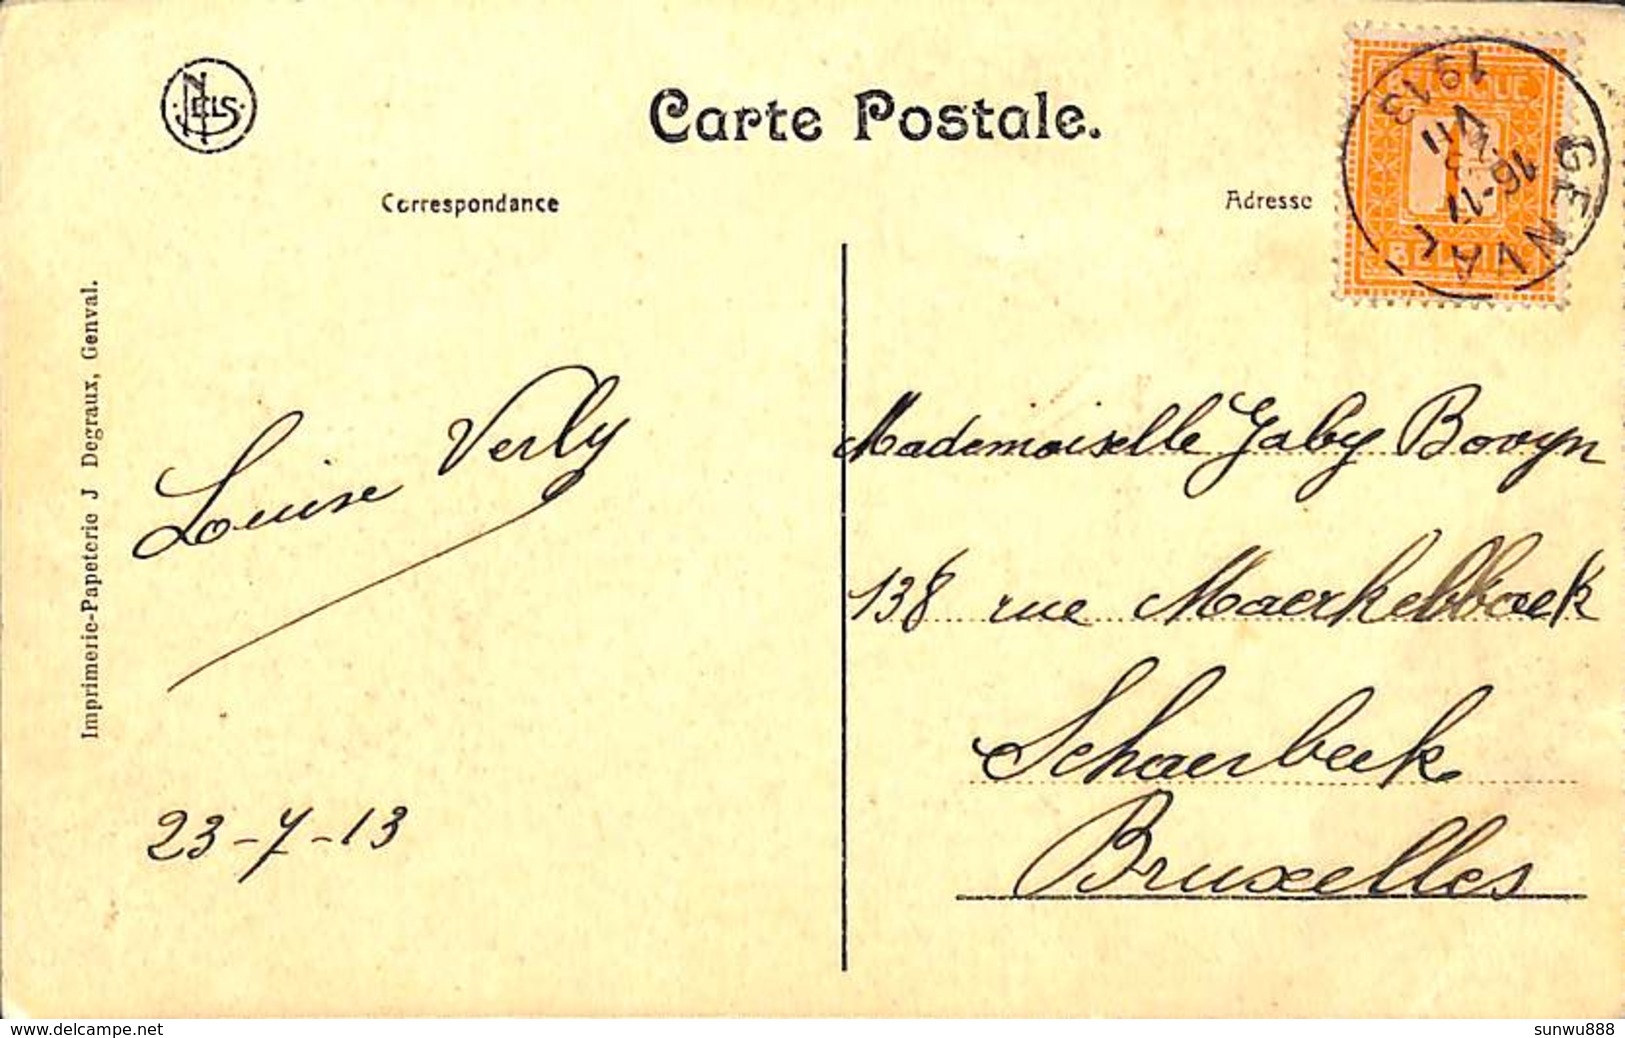 NELS
Carte Postale.
Correspondance
Adresse
BELGIQUE
1
BELGIË
GENVAL
16-17
VII
1913
Imprimerie-Papeterie J Degraux, Genval.
Louise Verly
23-7-13
Mademoiselle Gaby Bovyn
138 rue Maerkebbaek
Schaerbeek
Bruxelles
sunwu888